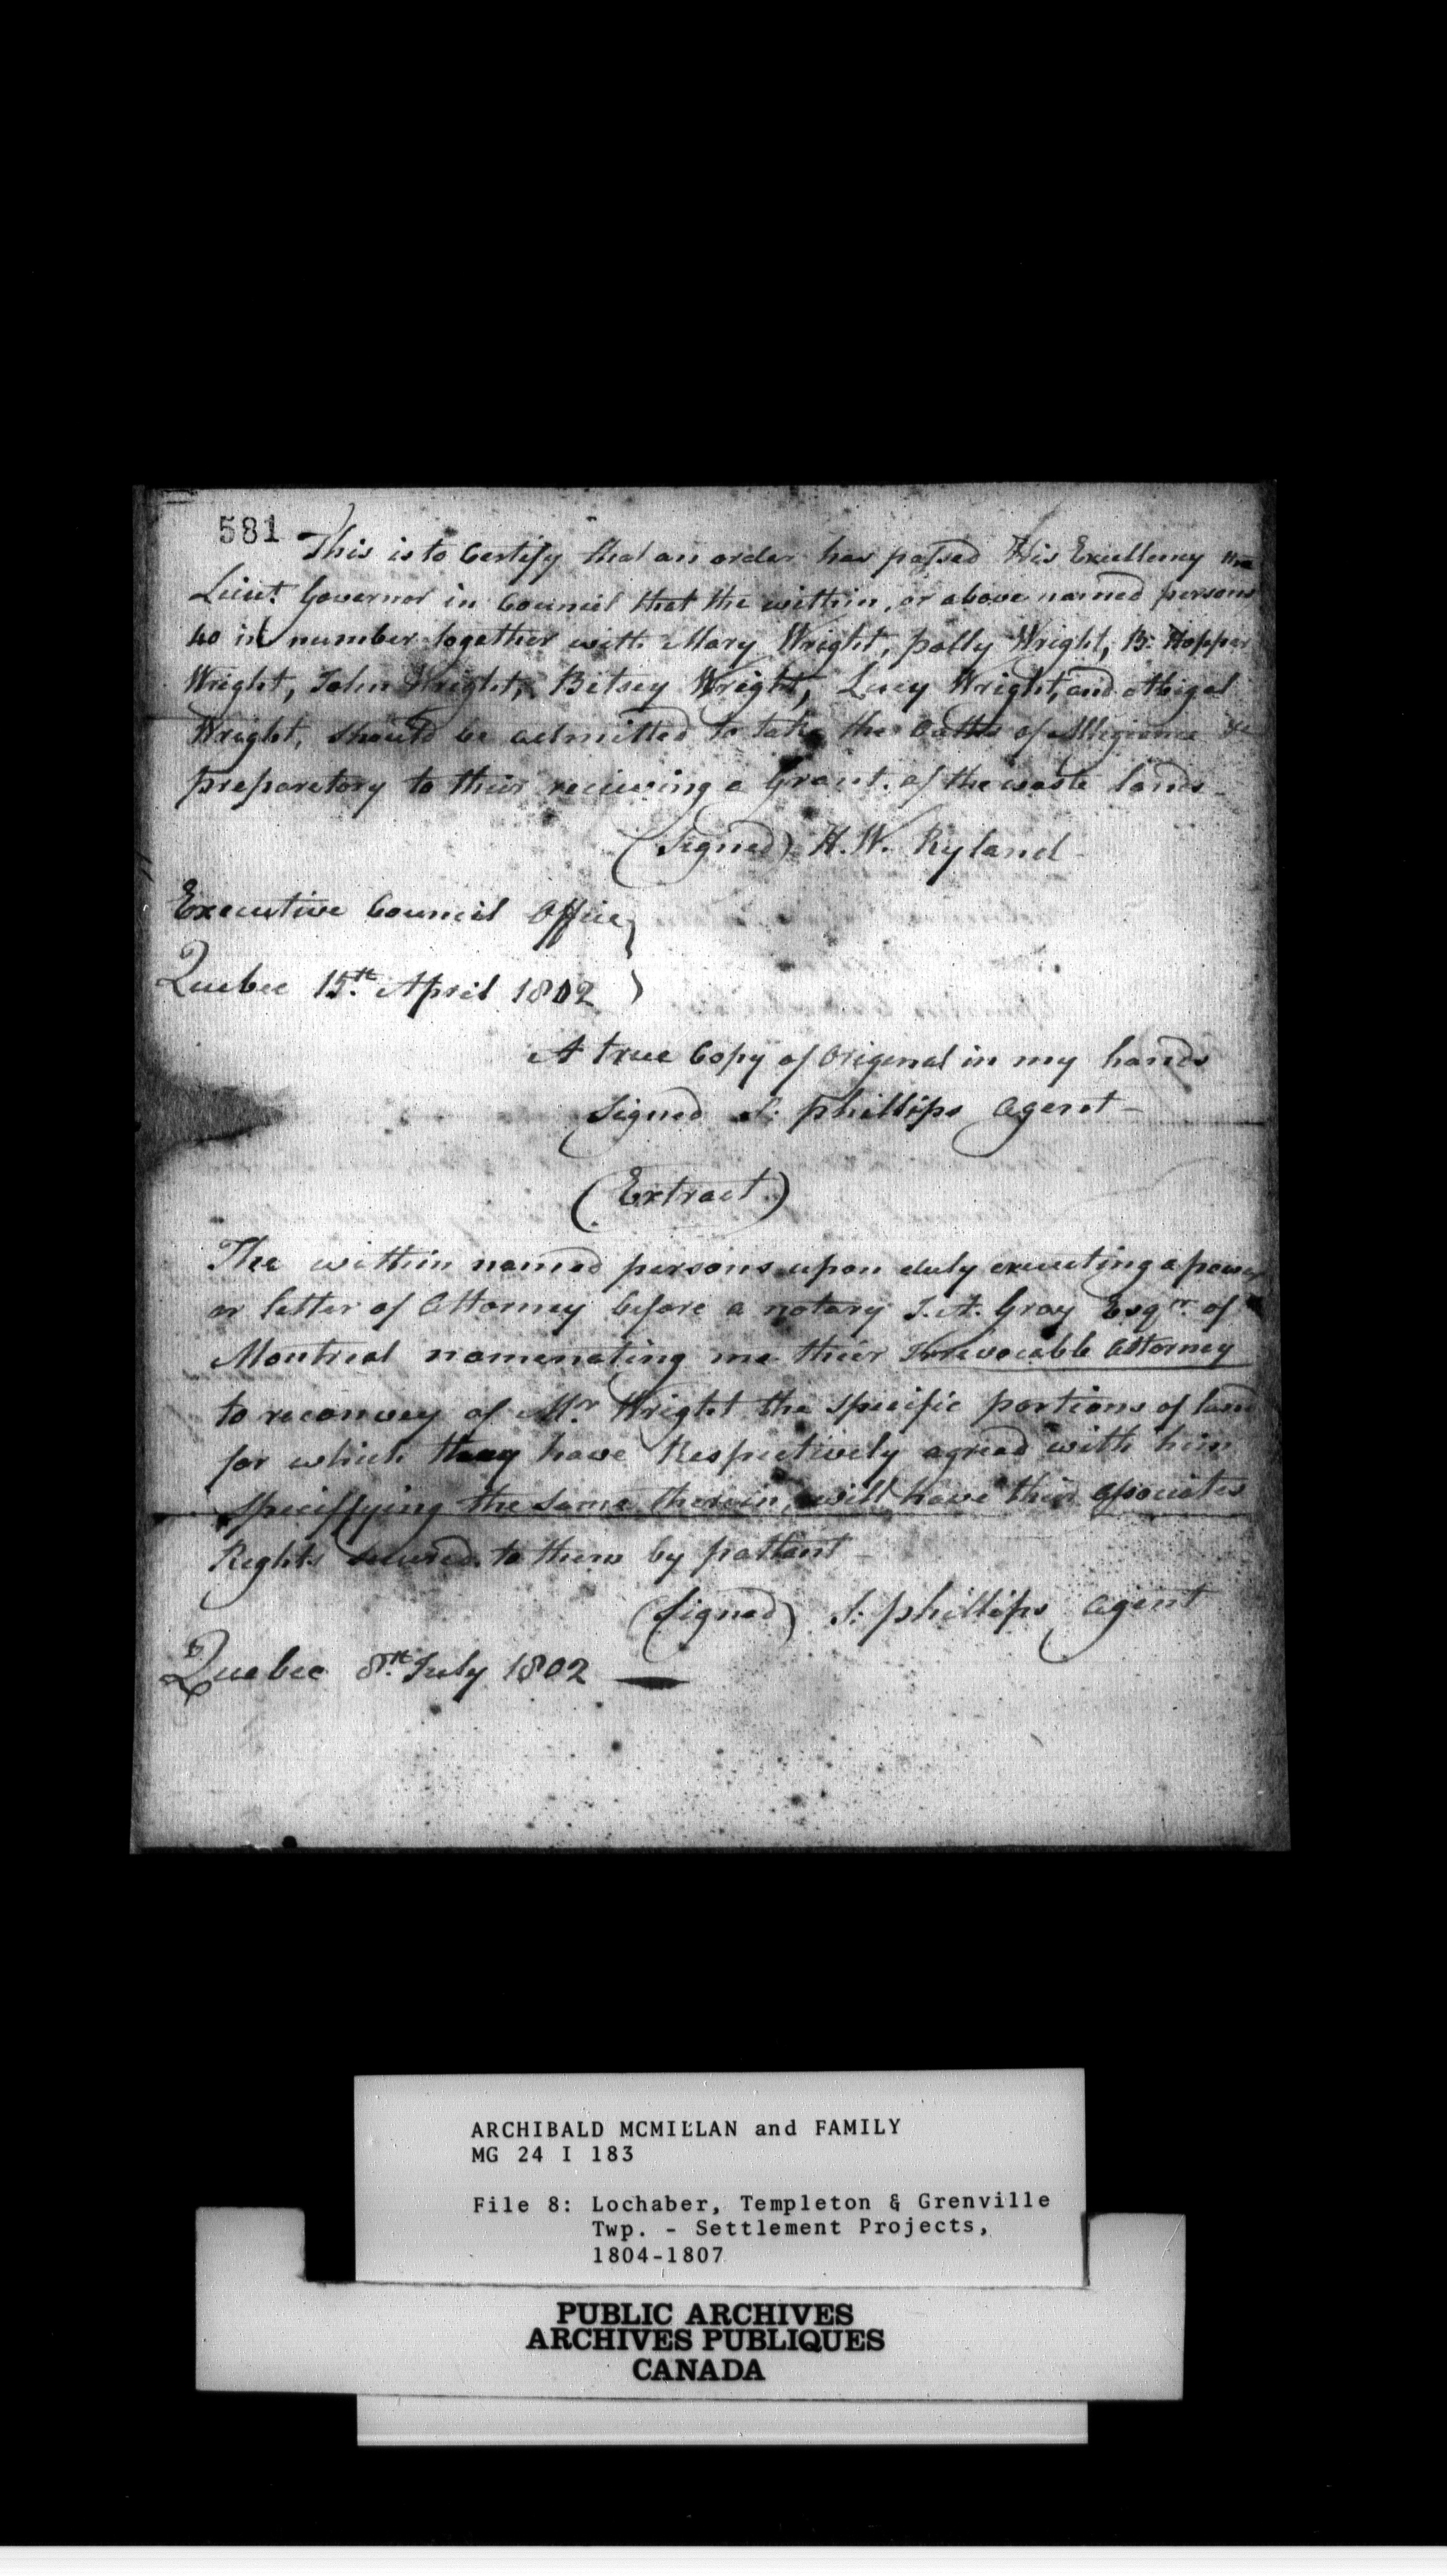 581
This is to Certify that an order has passed His Excellency the
Lieut. Governor in Council that the within, or above named persons
40 in number together with Mary Wright, polly Wright, B: Hopper
Wright, John Wright, Betsey Wright, Lucy Wright, and Abigal
Wright, should be admitted to take the Oaths of Allegiance &c
preparatory to their recieving a Grant of the waste lands
(Signed) H. W. Ryland
Executive Council Office
Quebec 15th April 1802
A true Copy of Original in my hands
Signed S: phillips Agent
(Extract)
The within named persons upon duly executing a power
or letter of Attorney before a notary J. A. Gray Esqr. of
Montreal nomenating me their Irrevocable Attorney
to reconvey of Mr Wright the specific portions of land
for which they have Respectively agreed with him
speciffying the same therein, will have their associates
Rights secured to them by pattent
(Signed) S: phillips Agent
Quebec 8th July 1802
ARCHIBALD MCMILLAN and FAMILY
MG 24 I 183
File 8: Lochaber, Templeton & Grenville
Twp. - Settlement Projects,
1804-1807
PUBLIC ARCHIVES
ARCHIVES PUBLIQUES
CANADA